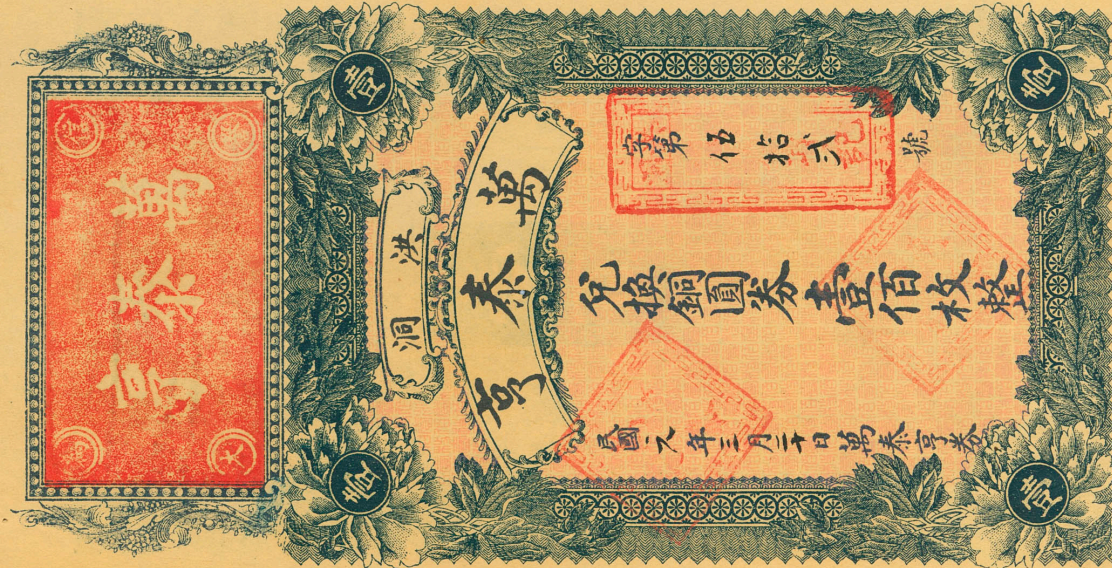 萬泰亨
壹 壹
洪洞
萬泰亨
字第伍拾弍號
兌換銅圓券壹佰枚整
民國 年三月二十日萬泰亨券
壹 壹